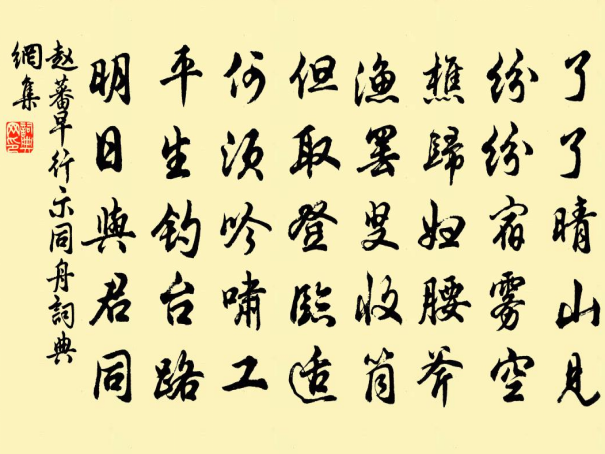 了了晴山見
紛紛宿雾空
樵歸妇腰斧
漁罢叟收筒
但取登臨适
何须吟嘯工
平生钓台路
明日與君同
赵蕃早行示同舟詞典
網集